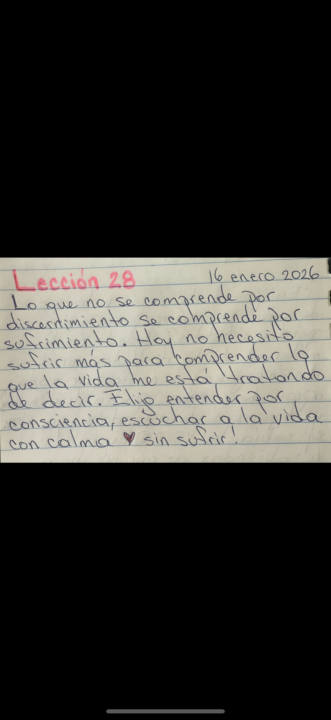 Lección 28
16 enero 2026
Lo que no se comprende por
discernimiento se comprende por
sufrimiento. Hoy no necesito
sufrir más para comprender lo
que la vida me está tratando
de decir. Elijo entender por
consciencia, escuchar a la vida
con calma ♥ sin sufrir!